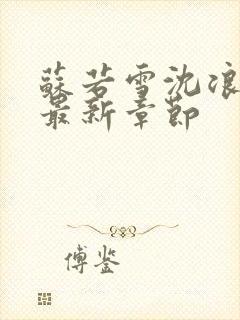 蘇若雪沈浪
最新章節
傅鉴